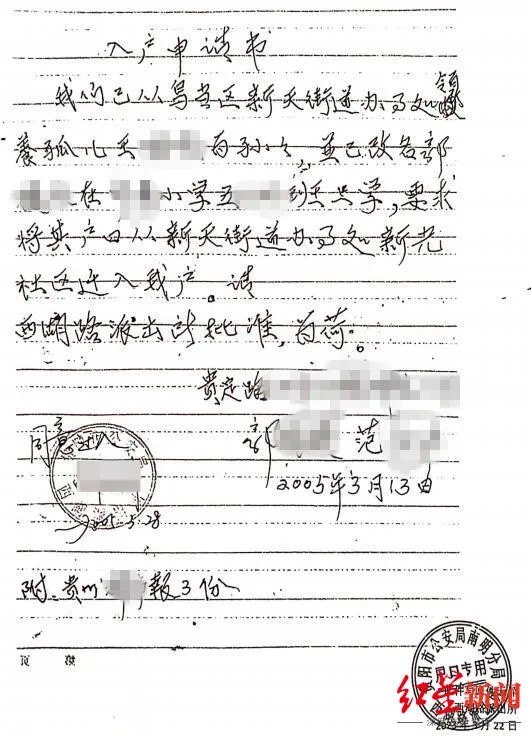 入户申请书
我们已从乌当区新天街道办事处领
养孤儿王 为孙女,並已改名郭
在 小学五 班上学,要求
将其户口从新天街道办事处新光
社区迁入我户。请
西湖路派出所批准,为荷。
贵定路
郭 范
同意迁入
2005年3月13日
2005.5.28
附:贵州 報3份
阳市公安局南明分局
户口专用
红星新闻
22日